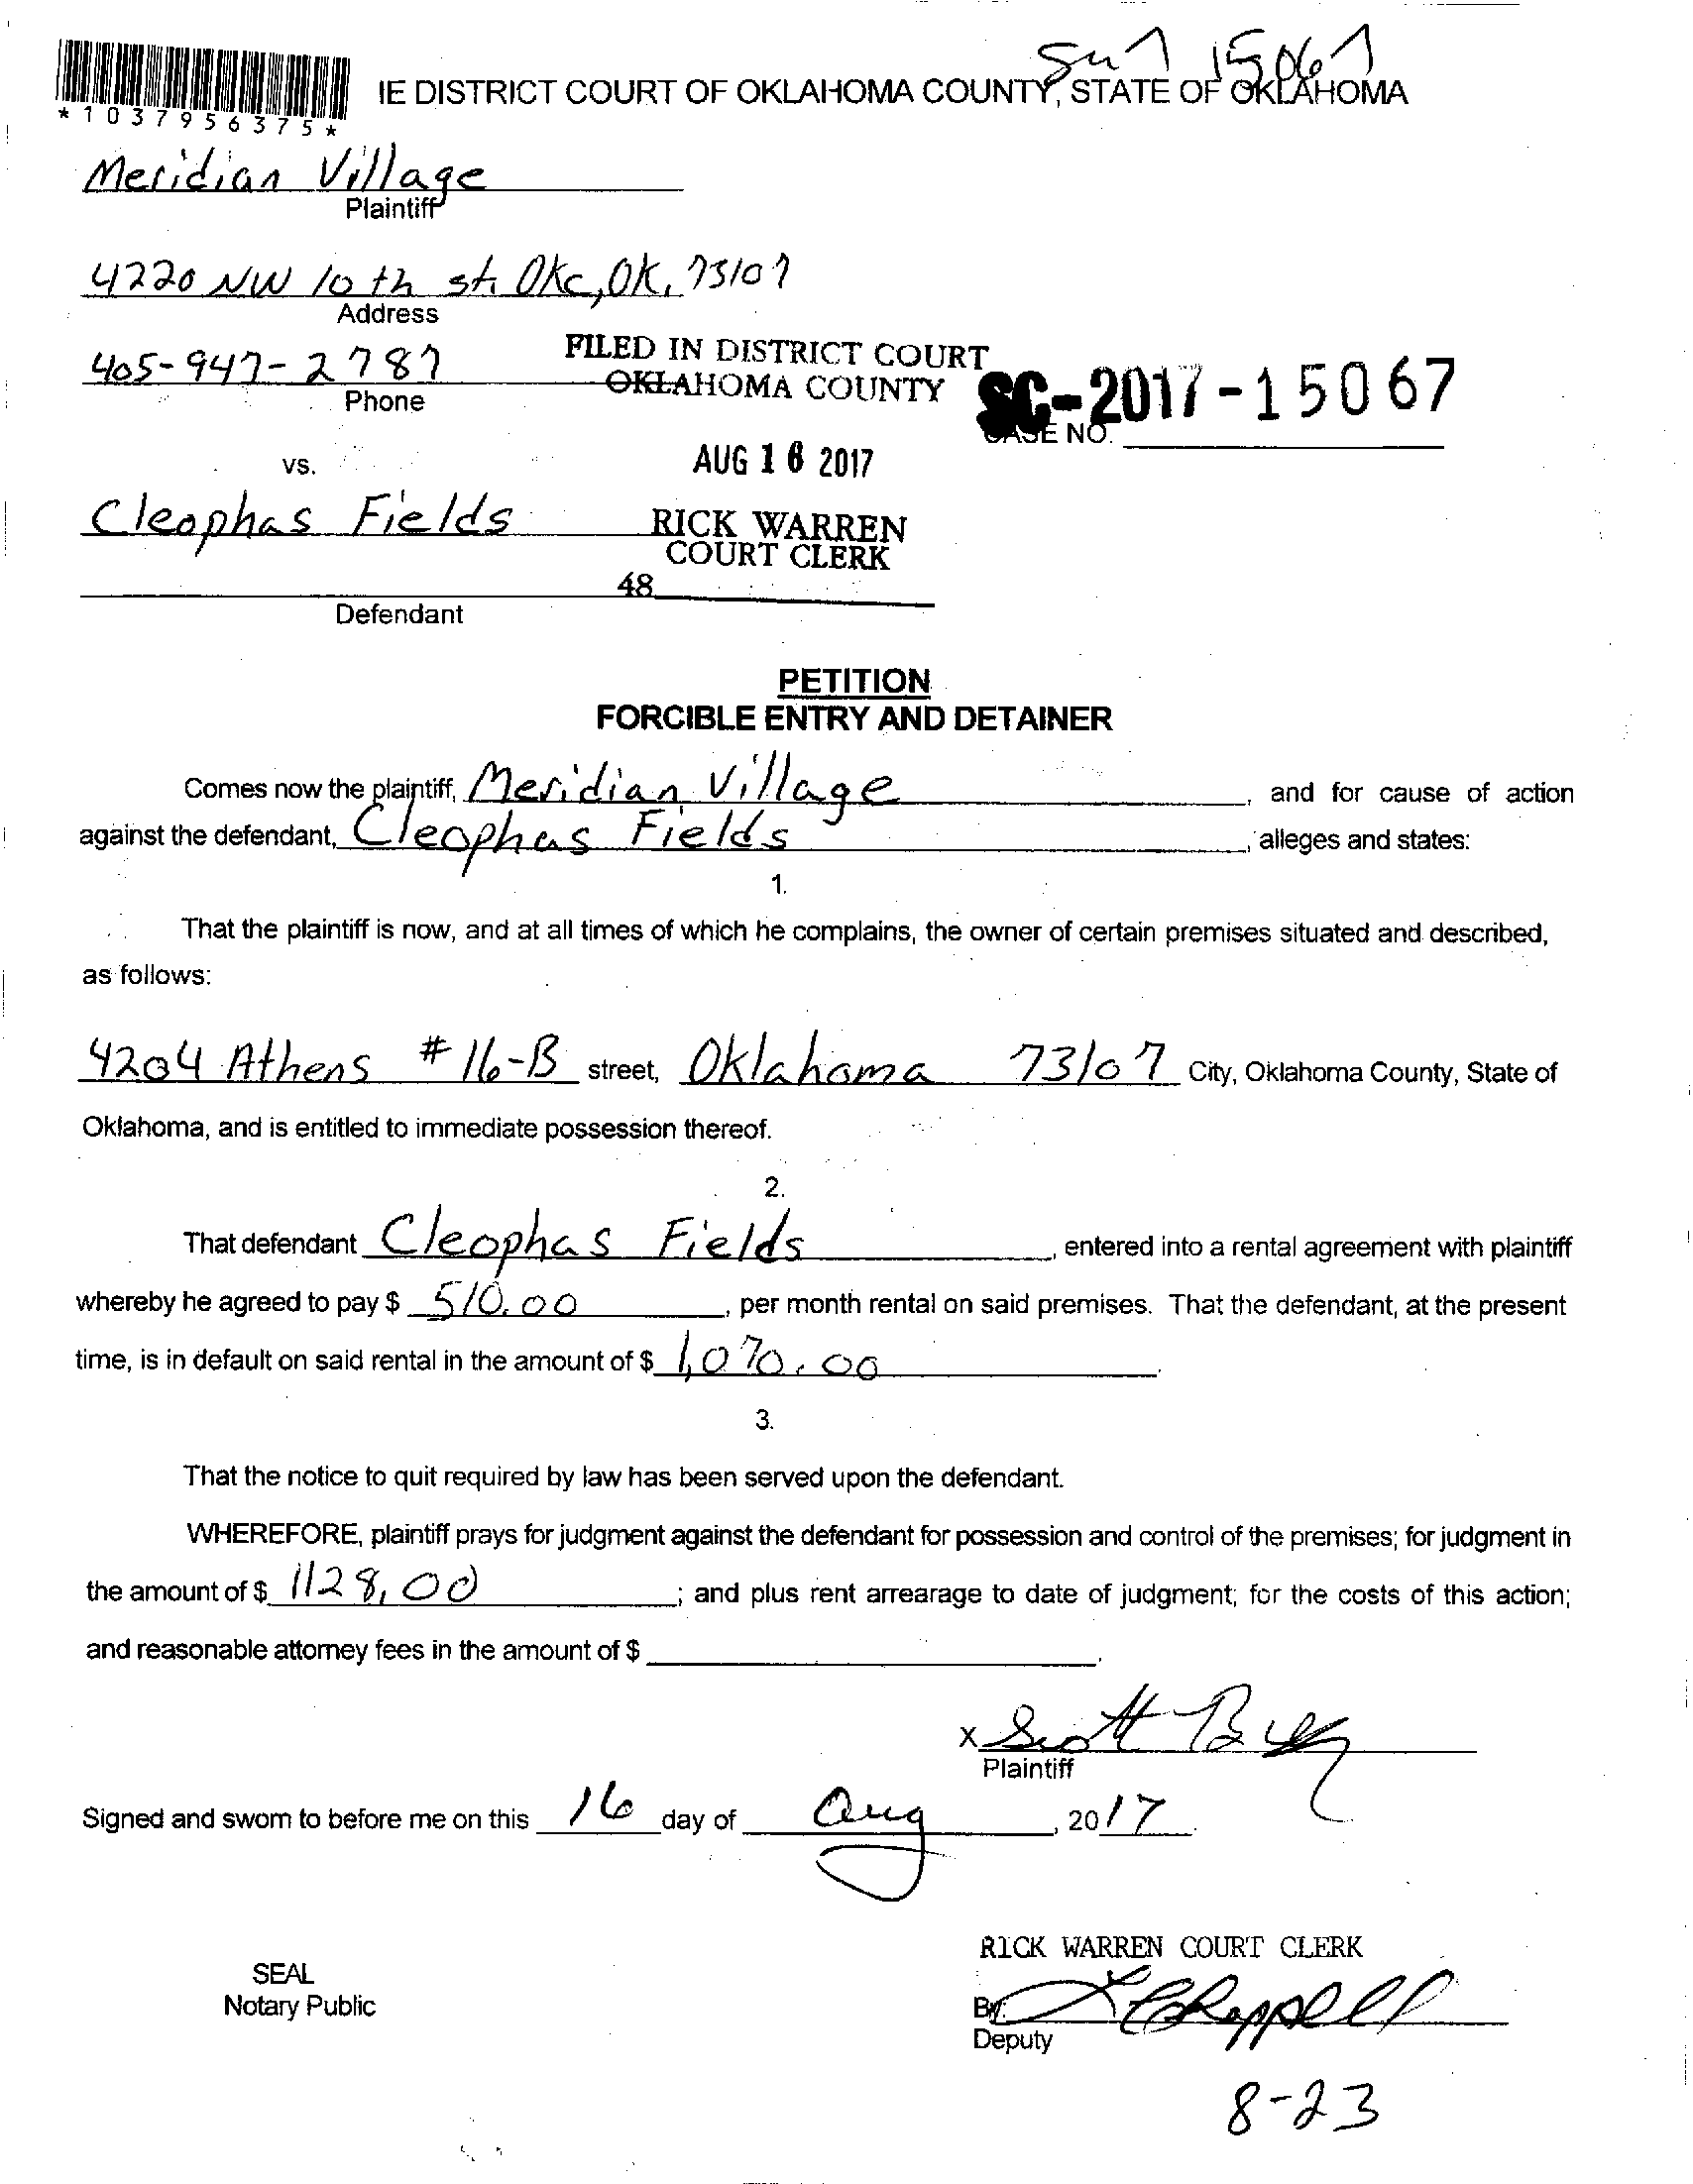 15067
IE DISTRICT COURT OF OKLAHOMA COUNTY, STATE OF OKLAHOMA
*1037956375*
Meridian Village
Plaintiff
4220 NW 10th st. Okc, OK, 73107
Address
405-947-2787
Phone
FILED IN DISTRICT COURT
OKLAHOMA COUNTY
SC-2017-15067
CASE NO.
vs.
AUG 16 2017
Cleophas Fields
RICK WARREN
COURT CLERK
48
Defendant
PETITION
FORCIBLE ENTRY AND DETAINER
Comes now the plaintiff, Meridian Village, and for cause of action
against the defendant, Cleophas Fields, alleges and states:
1.
That the plaintiff is now, and at all times of which he complains, the owner of certain premises situated and described,
as follows:
4204 Athens #16-B street, Oklahoma 73107 City, Oklahoma County, State of
Oklahoma, and is entitled to immediate possession thereof.
2.
That defendant Cleophas Fields, entered into a rental agreement with plaintiff
whereby he agreed to pay $ 510.00, per month rental on said premises. That the defendant, at the present
time, is in default on said rental in the amount of $ 1,070.00.
3.
That the notice to quit required by law has been served upon the defendant.
WHEREFORE, plaintiff prays for judgment against the defendant for possession and control of the premises; for judgment in
the amount of $ 1128,00; and plus rent arrearage to date of judgment; for the costs of this action;
and reasonable attorney fees in the amount of $ .
x Scott
Plaintiff
Signed and sworn to before me on this 16 day of Aug, 2017.
RICK WARREN COURT CLERK
SEAL
Notary Public
By: Chappell
Deputy
8-23